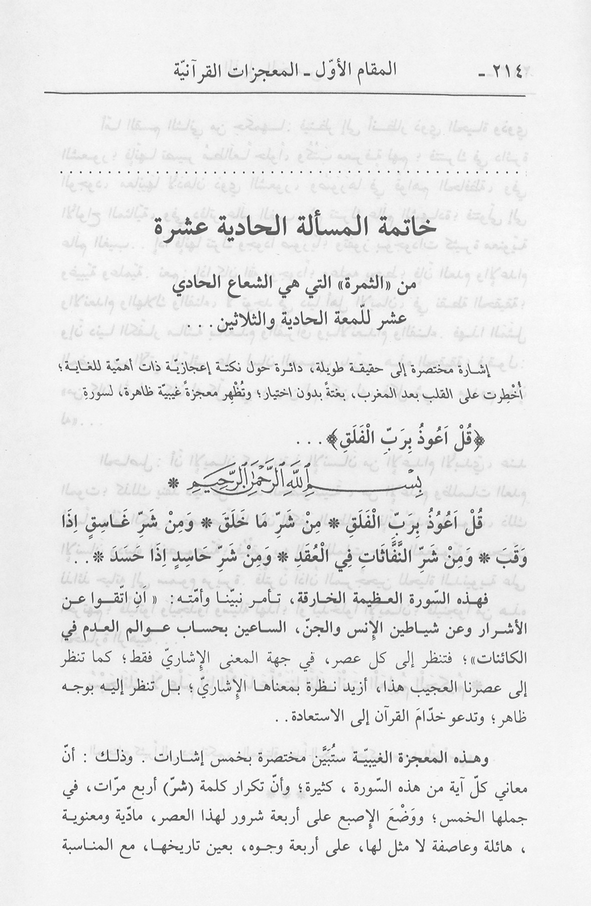 ٢١٤ - المقام الأوّل - المعجزات القرآنيّة
خاتمة المسألة الحادية عشرة
من «الثمرة» التي هي الشعاع الحادي
عشر للّمعة الحادية والثلاثين...
إشارة مختصرة إلى حقيقة طويلة، دائرة حول نكتة إعجازيّة ذات أهميّة للغاية؛
أُخْطِرت على القلب بعد المغرب، بغتةً بدون اختيار؛ وتُظْهِر معجزةً غيبيّة ظاهرة، لسورةِ
﴿قُلْ اَعُوذُ بِرَبِّ الْفَلَقِ﴾...
بِسْمِ اللّٰهِ الرَّحْمٰنِ الرَّحِيمِ *
قُلْ اَعُوذُ بِرَبِّ الْفَلَقِ * مِنْ شَرِّ مَا خَلَقَ * وَمِنْ شَرِّ غَاسِقٍ اِذَا
وَقَبَ * وَمِنْ شَرِّ النَّفَّاثَاتِ فِي الْعُقَدِ * وَمِنْ شَرِّ حَاسِدٍ اِذَا حَسَدَ *...
فهذه السّورة العظيمة الخارقة، تـأمـر نبيّنا وأمّتـه: « أَنِ اتّقـوا عـن
الأشرار وعن شياطين الإنس والجنّ، الساعين بحساب عـوالم العدم في
الكائنات»؛ فتنظر إلى كل عصر، في جهة المعنى الإشاريّ فقط؛ كما تنظر
إلى عصرنا العجيب هذا، أزيد نظرة بمعناهـا الإشاريّ؛ بـل تنظر إليـه بوجـه
ظاهر؛ وتدعو خدّامَ القرآن إلى الاستعادة..
وهـذه المعجزة الغيبيّـة ستُبَيَّن مختصرة بخمس إشارات . وذلـك : أنّ
معاني كلّ آية من هذه السّورة ، كثيرة؛ وأنّ تكرار كلمة (شرّ) أربع مرّات، في
جملها الخمس؛ ووَضْعَ الإصبع على أربعة شرور لهذا العصر، مادّية ومعنوية
، هائلة وعاصفة لا مثل لها، على أربعة وجـوه، بعين تاريخهـا، مع المناسبة